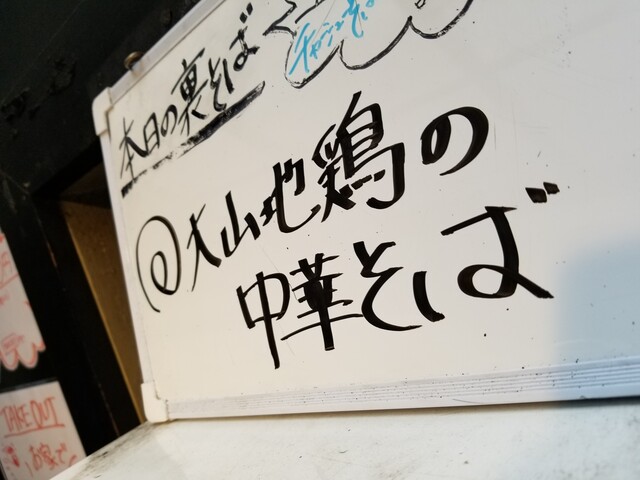 本日の裏そば
@大山地鶏の
中華そば
TAKE OUT
お家で